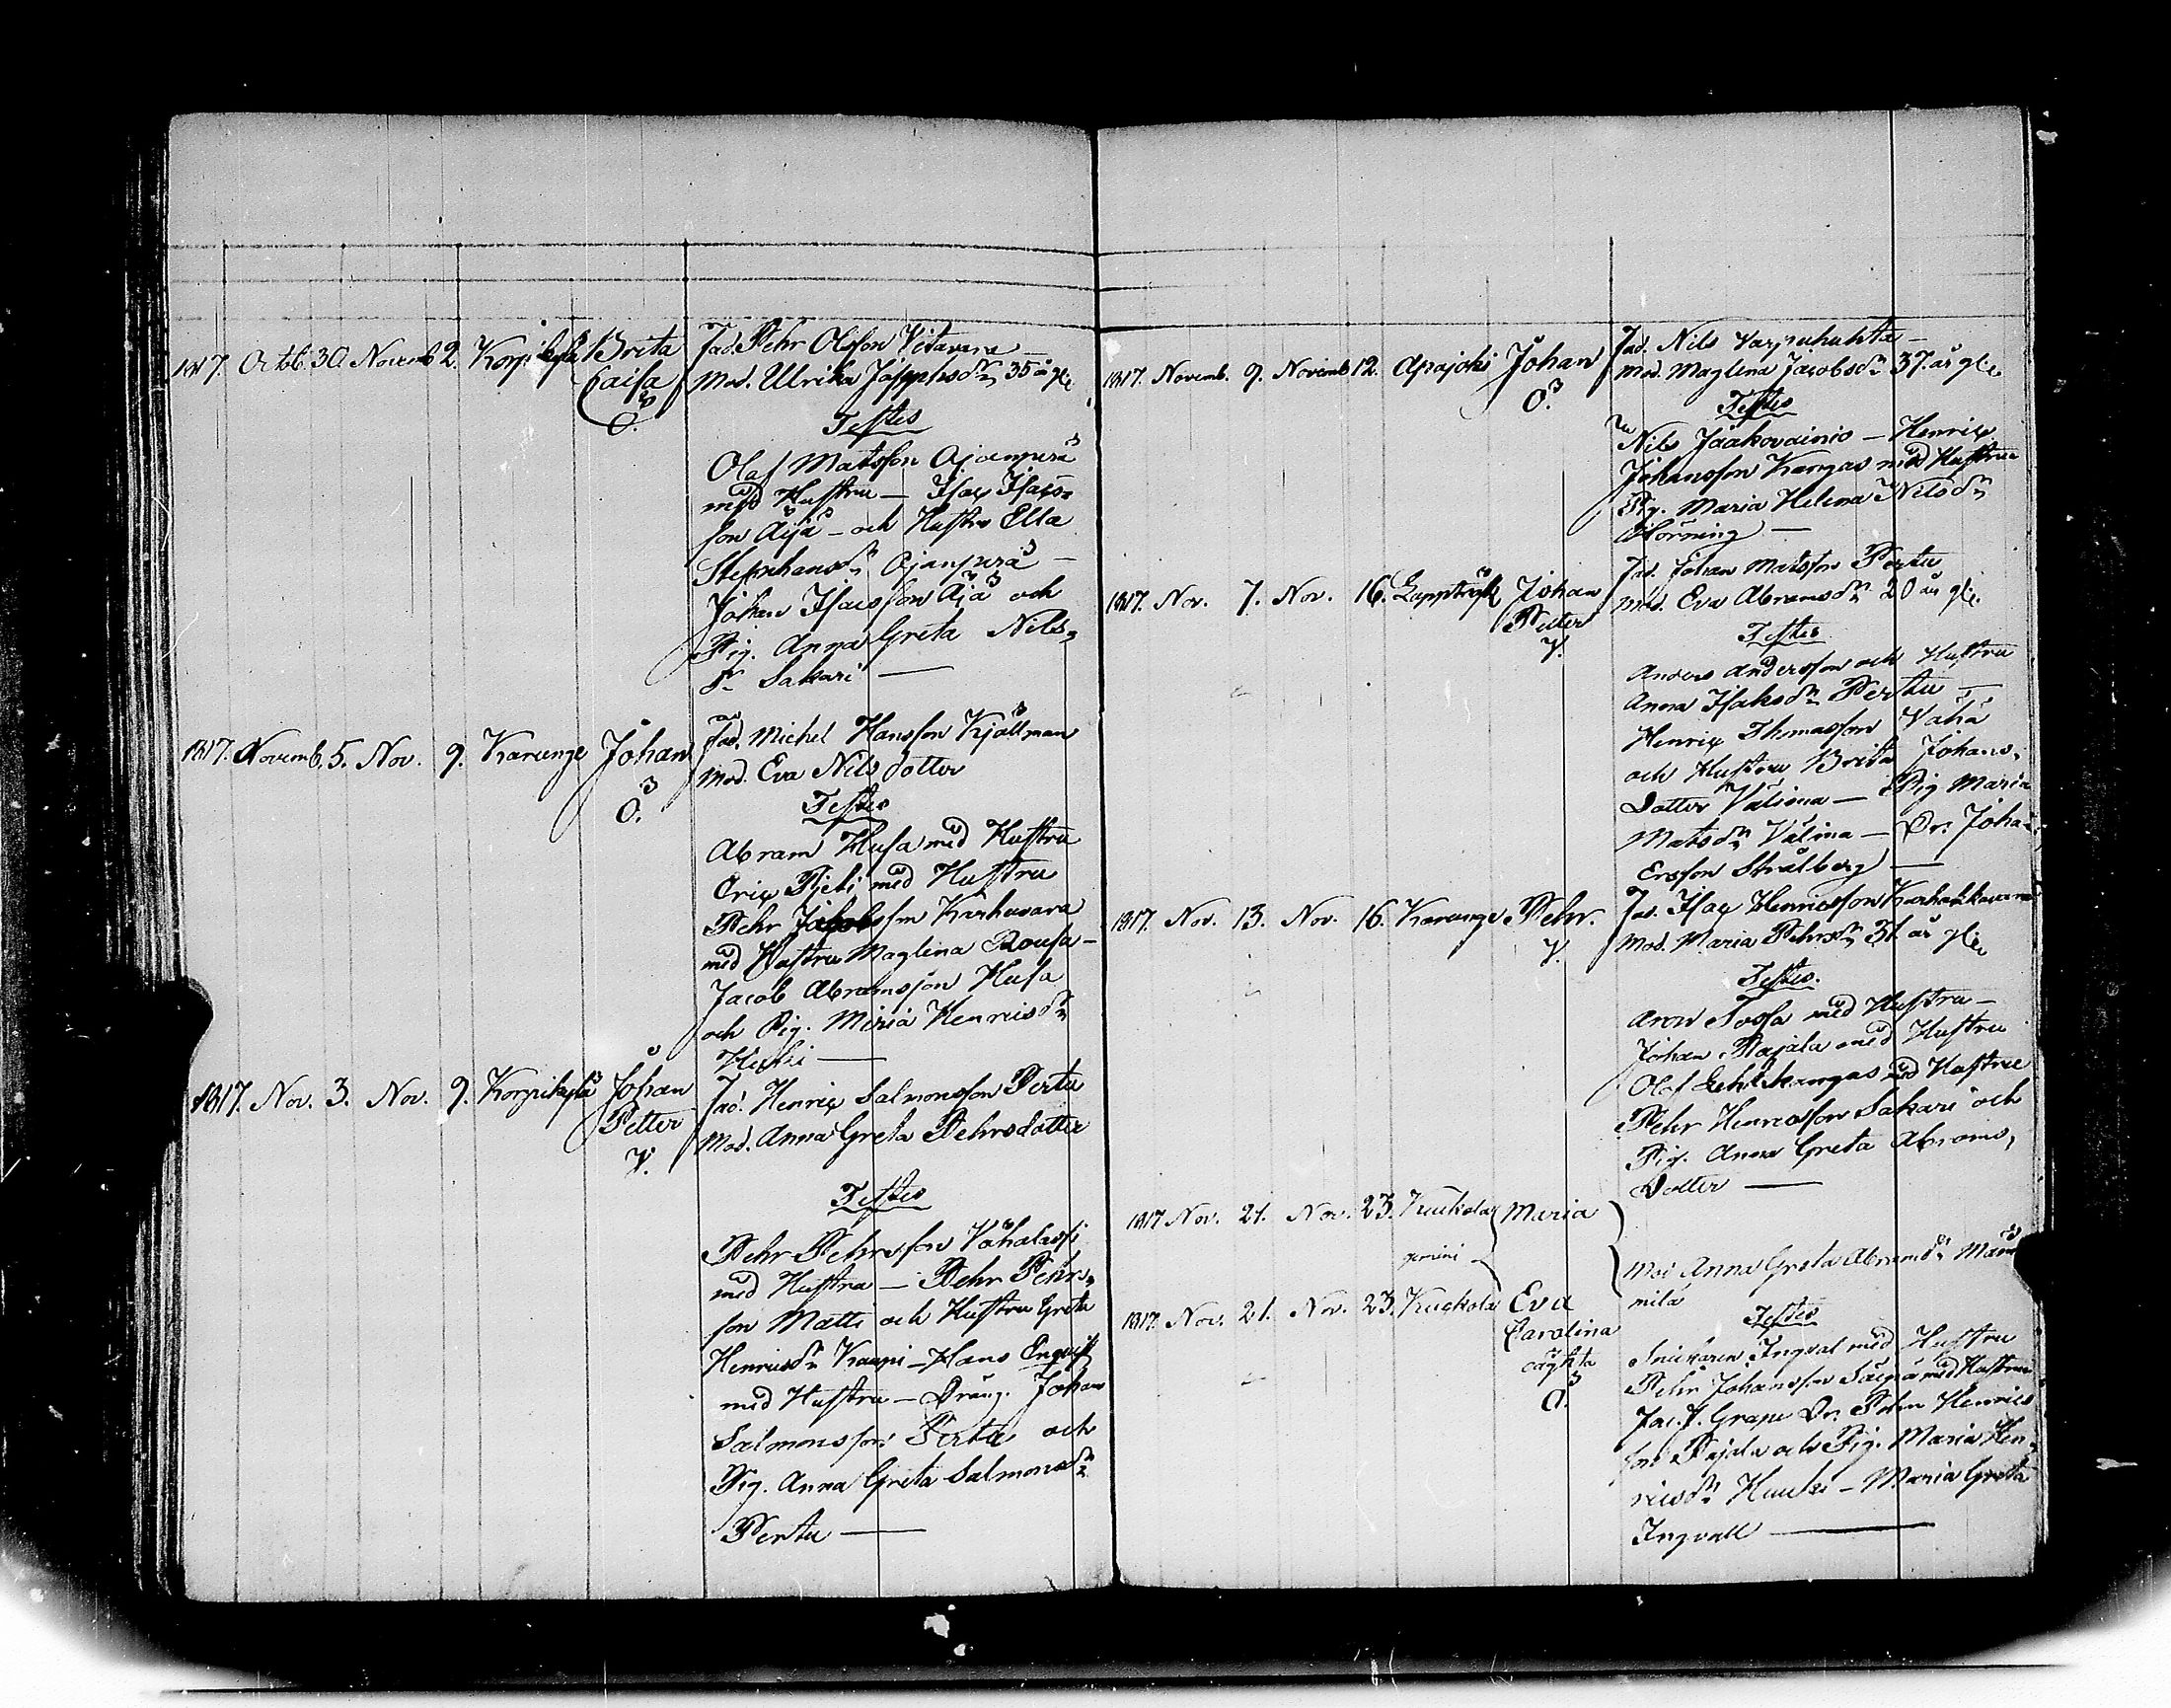 1817. Octob. 30. Novemb 2. Korpikylä Brita Fad. Pehr Olsson Vitavara
Caisa Mod. Ulrika Josephsdr 35 år gl.
Ö.
Testes
Olof Matsson Ajanperä
med Hustru — Isac Isacs-
son Äijä - och Hustru Ella
Stephansdr Ajanperä —
Johan Isacsson Äijä och
Pig. Anna Greta Nils-
dr Sakari —
1817. Novemb. 5. Nov. 9. Karunge Johan Fad. Michel Hansson Kjöllman
Mod. Eva Nilsdotter
Ö.
Testes
Abram Husa med Hustru
Eric Pjeti med Hustru
Pehr Jacobsson Karhuvara
med Hustru Maglena Rousa -
Jacob Abramsson Husa
och Pig. Maria Henricsdr
1817. Nov. 3. Nov. 9. Korpikylä Johan Fad. Henric Salmonsson Pertu
Petter Mod. Anna Greta Pehrsdotter
Y.
Testes
Pehr Pehrsson Vähälassi
med Hustru — Pehr Pehrs-
son Matti och Hustru Greta
Henricsdr Kauppi - Hans Enqvist
med Hustru - Dräng. Johan
Salmonsson Pertu och
Pig. Anna Greta Salmonsdr
Pertu —
1817. Novemb. 9. Novemb 12. Apajoki Johan Fad. Nils Varpuhuhta -
Mod. Maglena Jacobsdr 37. år gl.
Ö.
Testes
Nils Jaakovainio - Henric
Johansson Kangas med Hustru
Pig. Maria Helena Nilsdr
Hörning —
1817. Nov. 7. Nov. 16. Lappträsk Johan Fad. Johan Matsson Pertu
Petter Mod. Eva Abramsdr 20 år gl.
Y.
Testes
Anders Andersson och Hustru
Anna Isaksdr Pertu —
Henric Thomasson Vähä
och Hustru Brita Johans-
Dotter Välima — Pig Maria
Matsdr Välima — Dr. Johan
Ersson Strålberg —
1817. Nov. 13. Nov. 16. Karunge Pehr. Fad. Isac Henricsson
Mod. Maria Pehrsdr 31. år gl.
Y.
Testes.
Aron Tossa med Hustru -
Johan Rajala med Hustru
Olof Lehtikangas med Hustru
Pehr Henricsson Sakari och
Pig. Anna Greta Abrams-
Dotter —
1817 Nov. 21. Nov. 23. Kuckola Maria
gemini
Mod Anna Greta Abramsdr
1817. Nov. 21. Nov. 23. Kuckola Eva
Carolina
oägta
Ö.
Testes
Snickaren Ingval med Hustru
Pehr Johansson med Hustru
Jac. J. Grape Dr. Pehr Henrics
son Rajala och Pig. Maria Hen-
ricsdr Huuki - Maria Greta
Ingvall —